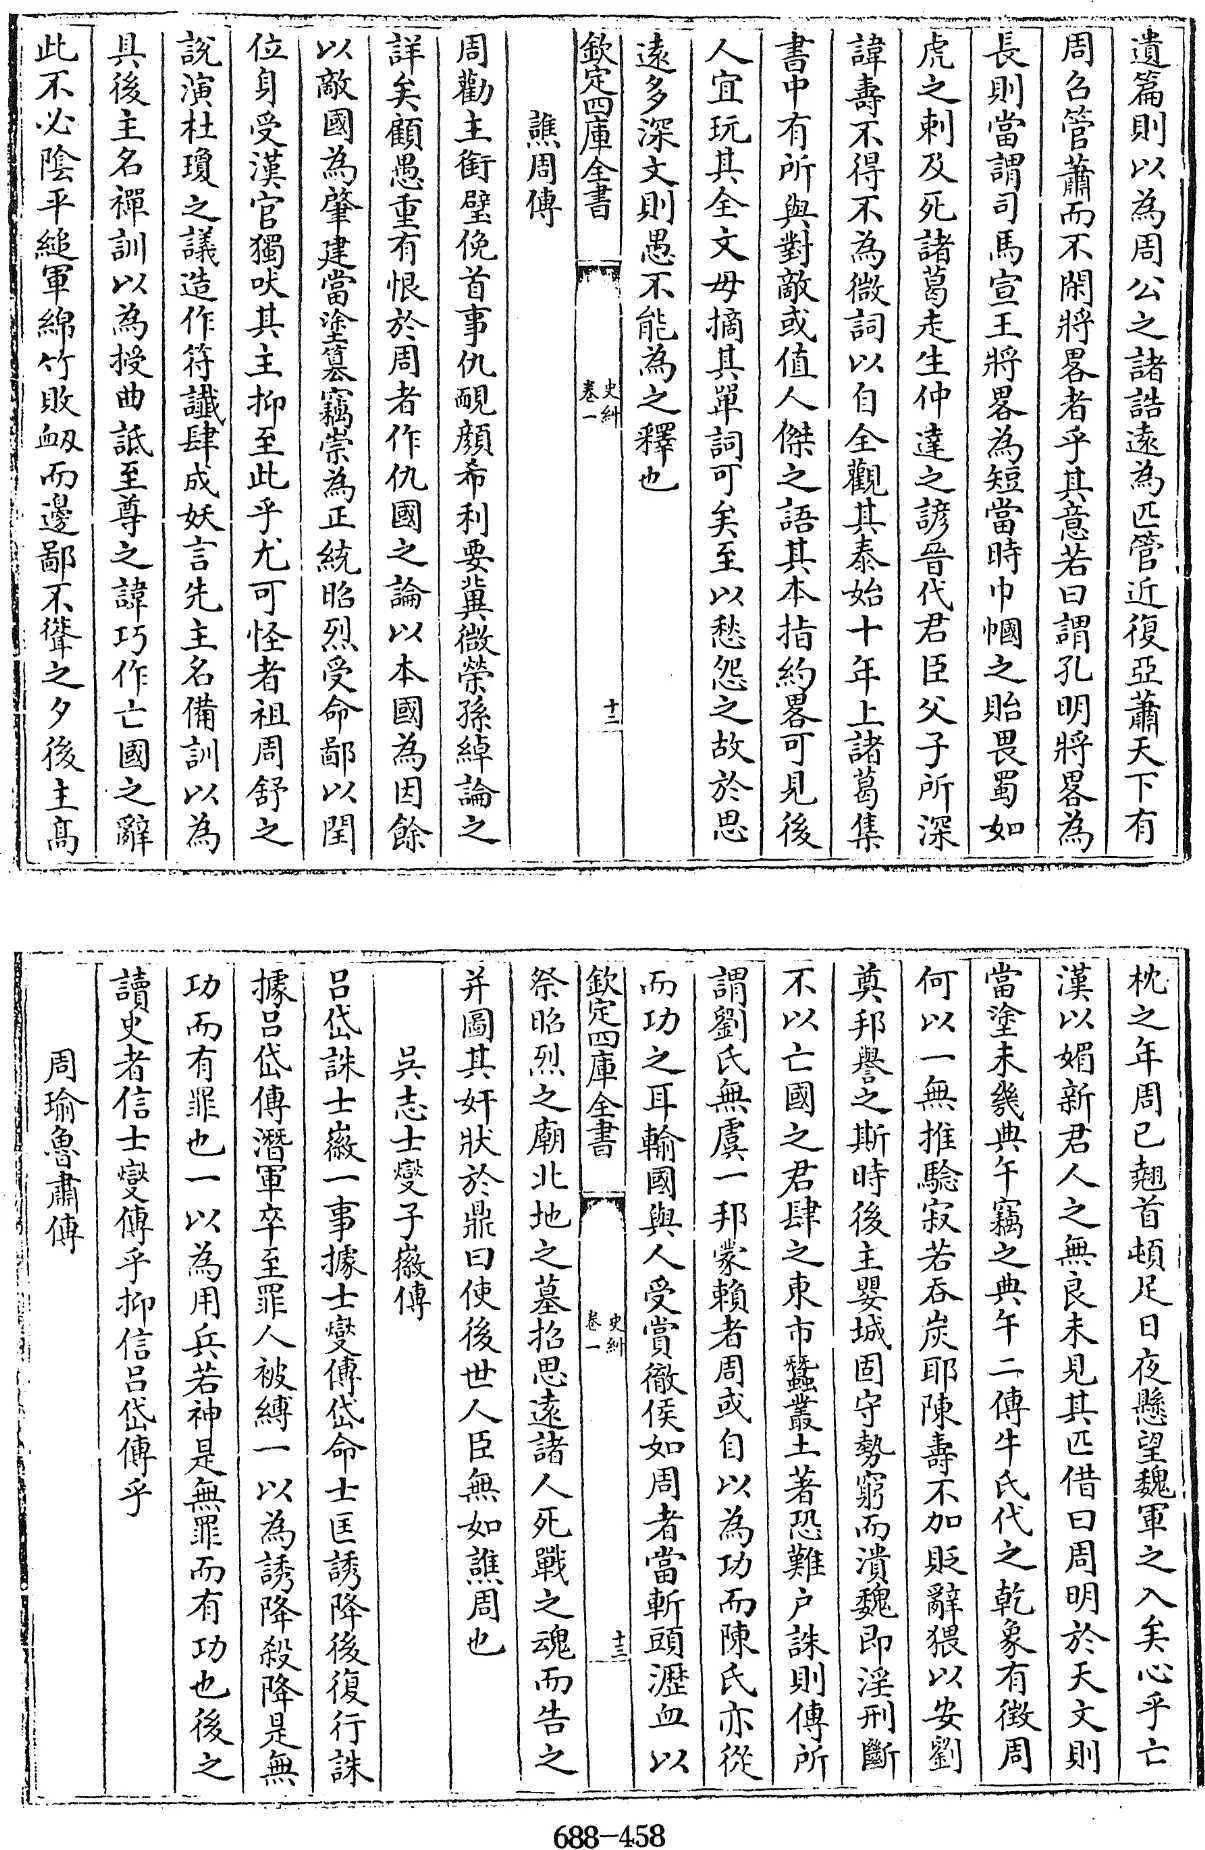 遺篇則以為周公之諸誥遠為匹管近復亞蕭天下有
周召管蕭而不閑將畧者乎其意若曰謂孔明將畧為
長則當謂司馬宣王將畧為短當時巾幗之貽畏蜀如
虎之刺及死諸葛走生仲達之諺晉代君臣父子所深
諱壽不得不為微詞以自全觀其泰始十年上諸葛集
書中有所與對敵或值人傑之語其本指約畧可見後
人宜玩其全文毋摘其單詞可矣至以愁怨之故於思
遠多深文則愚不能為之釋也
欽定四庫全書
史糾
卷一
十二
譙周傳
周勸主銜璧俛首事仇靦顔希利要冀微榮孫綽論之
詳矣顧愚重有恨於周者作仇國之論以本國為因餘
以敵國為肇建當塗篡竊崇為正統昭烈受命鄙以閏
位身受漢官獨吠其主抑至此乎尤可怪者祖周舒之
說演杜瓊之議造作符讖肆成妖言先主名備訓以為
具後主名禪訓以為授曲詆至尊之諱巧作亡國之辭
此不必陰平縋軍綿竹敗衂而邊鄙不聳之夕後主髙
枕之年周已翹首頓足日夜懸望魏軍之入矣心乎亡
漢以媚新君人之無良未見其匹借曰周明於天文則
當塗未幾典午竊之典午二傳牛氏代之乾象有徴周
何以一無推驗寂若吞炭耶陳壽不加貶辭猥以安劉
奠邦譽之斯時後主嬰城固守勢窮而潰魏即淫刑斷
不以亡國之君肆之東市蠶叢土著恐難户誅則傳所
謂劉氏無虞一邦蒙賴者周或自以為功而陳氏亦從
而功之耳輸國與人受賞徹侯如周者當斬頭瀝血以
欽定四庫全書
史糾
卷一
十三
祭昭烈之廟北地之墓招思遠諸人死戰之魂而告之
并圖其奸狀於鼎曰使後世人臣無如譙周也
吳志士燮子徽傳
呂岱誅士徽一事據士燮傳岱命士匡誘降後復行誅
據呂岱傳潛軍卒至罪人被縛一以為誘降殺降是無
功而有罪也一以為用兵若神是無罪而有功也後之
讀史者信士燮傳乎抑信呂岱傳乎
周瑜魯肅傳
688-458